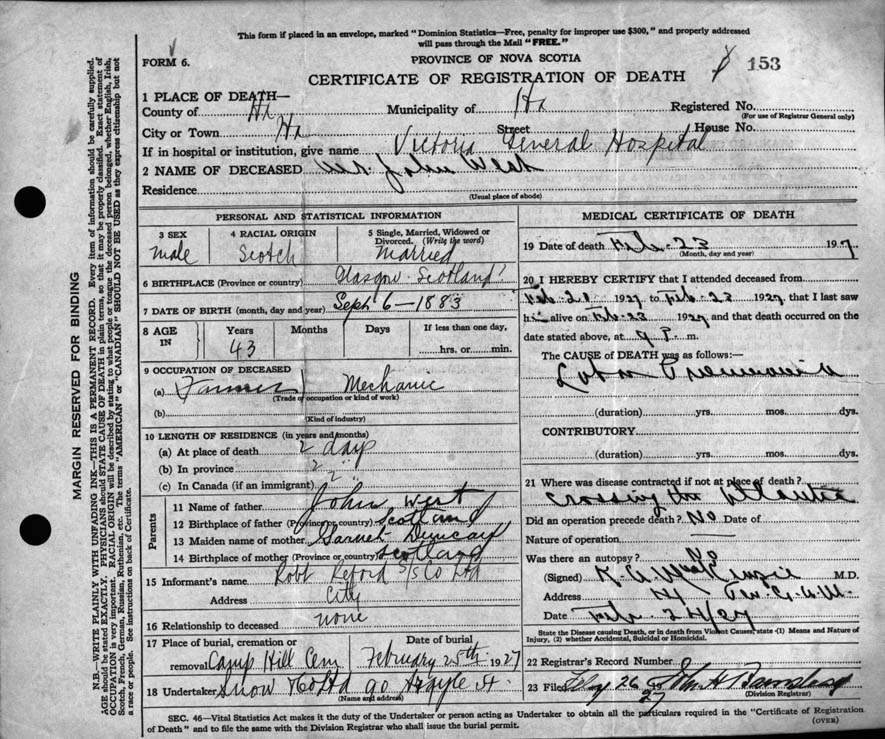 This form if placed in an envelope, marked "Dominion Statistics—Free, penalty for improper use $300," and properly addressed
will pass through the Mail "FREE."
FORM 6.
PROVINCE OF NOVA SCOTIA
CERTIFICATE OF REGISTRATION OF DEATH 153
1 PLACE OF DEATH—
County of Hx Municipality of Hx Registered No.
(For use of Registrar General only)
City or Town Hx Street House No.
If in hospital or institution, give name Victoria General Hospital
2 NAME OF DECEASED Mr. John West
Residence
(Usual place of abode)
PERSONAL AND STATISTICAL INFORMATION
3 SEX
male
4 RACIAL ORIGIN
Scotch
5 Single, Married, Widowed or
Divorced. (Write the word)
Married
6 BIRTHPLACE (Province or country) Glasgow Scotland
7 DATE OF BIRTH (month, day and year) Sept 6—1883
8 AGE IN
Years Months Days If less than one day,
43 hrs. or min.
9 OCCUPATION OF DECEASED
(a) Farmer Mechanic
(Trade or occupation or kind of work)
(b)
(Kind of industry)
10 LENGTH OF RESIDENCE (in years and months)
(a) At place of death 2 days
(b) In province 2 "
(c) In Canada (if an immigrant) 2 "
Parents
11 Name of father John West
12 Birthplace of father (Province or country) Scotland
13 Maiden name of mother Duncan
14 Birthplace of mother (Province or country) Scotland
15 Informant's name Robt Reford S/S Co Ltd
Address City
16 Relationship to deceased none
17 Place of burial, cremation or Date of burial
removal Camp Hill Cem February 25th 1927
18 Undertaker Snow & Co Ltd 90 Argyle St
(Name and address)
MEDICAL CERTIFICATE OF DEATH
19 Date of death Feb. 23 1927
(Month, day and year)
20 I HEREBY CERTIFY that I attended deceased from
Feb. 21 1927 to Feb. 23 1927, that I last saw
him alive on Feb. 23 1927 and that death occurred on the
date stated above, at 9 P. m.
The CAUSE OF DEATH was as follows:—
Lobar Pneumonia
(duration) yrs. mos. dys.
CONTRIBUTORY
(duration) yrs. mos. dys.
21 Where was disease contracted if not at place of death?
Crossing the Atlantic
Did an operation precede death? No Date of
Nature of operation —
Was there an autopsy? No
(Signed) K. A. MacKenzie M.D.
Address
Date Feb 24/27
State the Disease causing Death, or in death from Violent Causes, state (1) Means and Nature of
Injury, (2) whether Accidental, Suicidal or Homicidal.
22 Registrar's Record Number
23 Filed Feby 26 27 John H Barnstead
(Division Registrar)
SEC. 46—Vital Statistics Act makes it the duty of the Undertaker or person acting as Undertaker to obtain all the particulars required in the "Certificate of Registration
of Death" and to file the same with the Division Registrar who shall issue the burial permit.
(OVER)
MARGIN RESERVED FOR BINDING
N.B.—WRITE PLAINLY WITH UNFADING INK—THIS IS A PERMANENT RECORD. Every item of information should be carefully supplied.
AGE should be stated EXACTLY. PHYSICIANS should STATE CAUSE OF DEATH in plain terms, so that it may be properly classified. Exact statement of
OCCUPATION is very important. RACIAL ORIGIN will be described by stating to what people or tongue the deceased person belonged, whether English, Irish,
Scotch, French, German, Russian, Ruthenian, etc. The terms "AMERICAN" or "CANADIAN" SHOULD NOT BE USED as they express citizenship but not
a race or people. See instructions on back of Certificate.